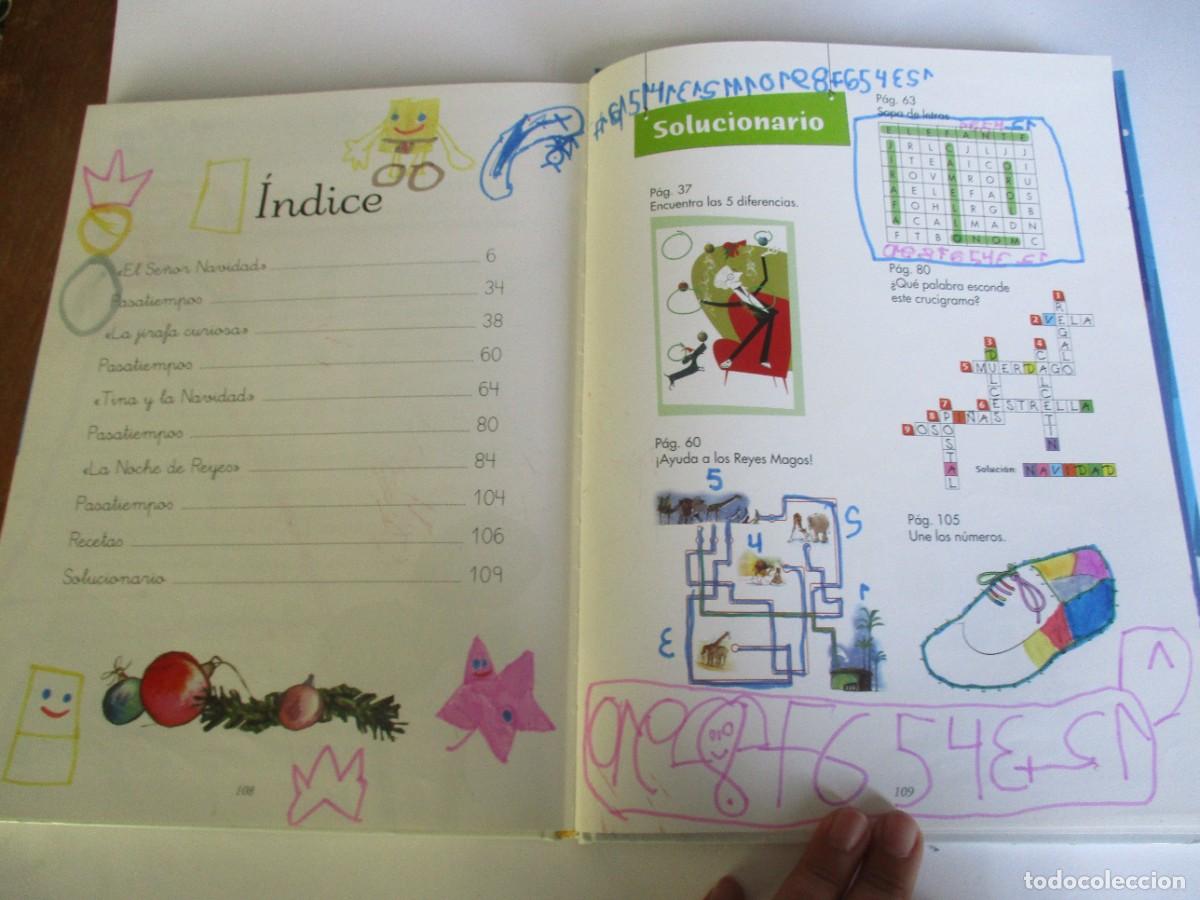 Índice
«El Señor Navidad» 6
Pasatiempos 34
«La jirafa curiosa» 38
Pasatiempos 60
«Tina y la Navidad» 64
Pasatiempos 80
«La Noche de Reyes» 84
Pasatiempos 104
Recetas 106
Solucionario 109
108
Solucionario
Pág. 37
Encuentra las 5 diferencias.
Pág. 60
¡Ayuda a los Reyes Magos!
5
4
3
2
1
Pág. 63
Sopa de letras
ELEFANTE
Pág. 80
¿Qué palabra esconde
este crucigrama?
1 REGALO
2 VELA
3 DULCES
4 CALCETIN
5 MUERDAGO
6 ESTRELLA
7 POSTAL
8 PIÑAS
9 OSO
Solución: NAVIDAD
Pág. 105
Une los números.
109
todocoleccion